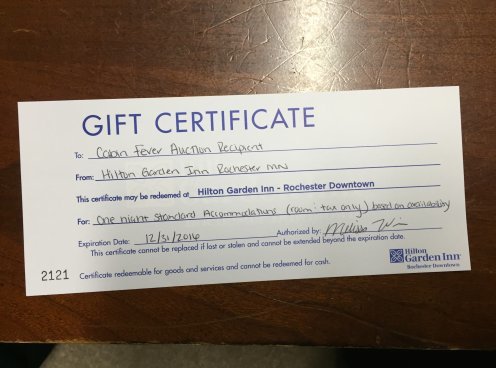 GIFT CERTIFICATE
To: Cabin Fever Auction Recipient
From: Hilton Garden Inn Rochester MN
This certificate may be redeemed at Hilton Garden Inn - Rochester Downtown
For: One night Standard Accommodations (room + tax only) based on availability
Expiration Date: 12/31/2016 Authorized by: Melissa
This certificate cannot be replaced if lost or stolen and cannot be extended beyond the expiration date.
2121 Certificate redeemable for goods and services and cannot be redeemed for cash.
Hilton
Garden Inn
Rochester Downtown